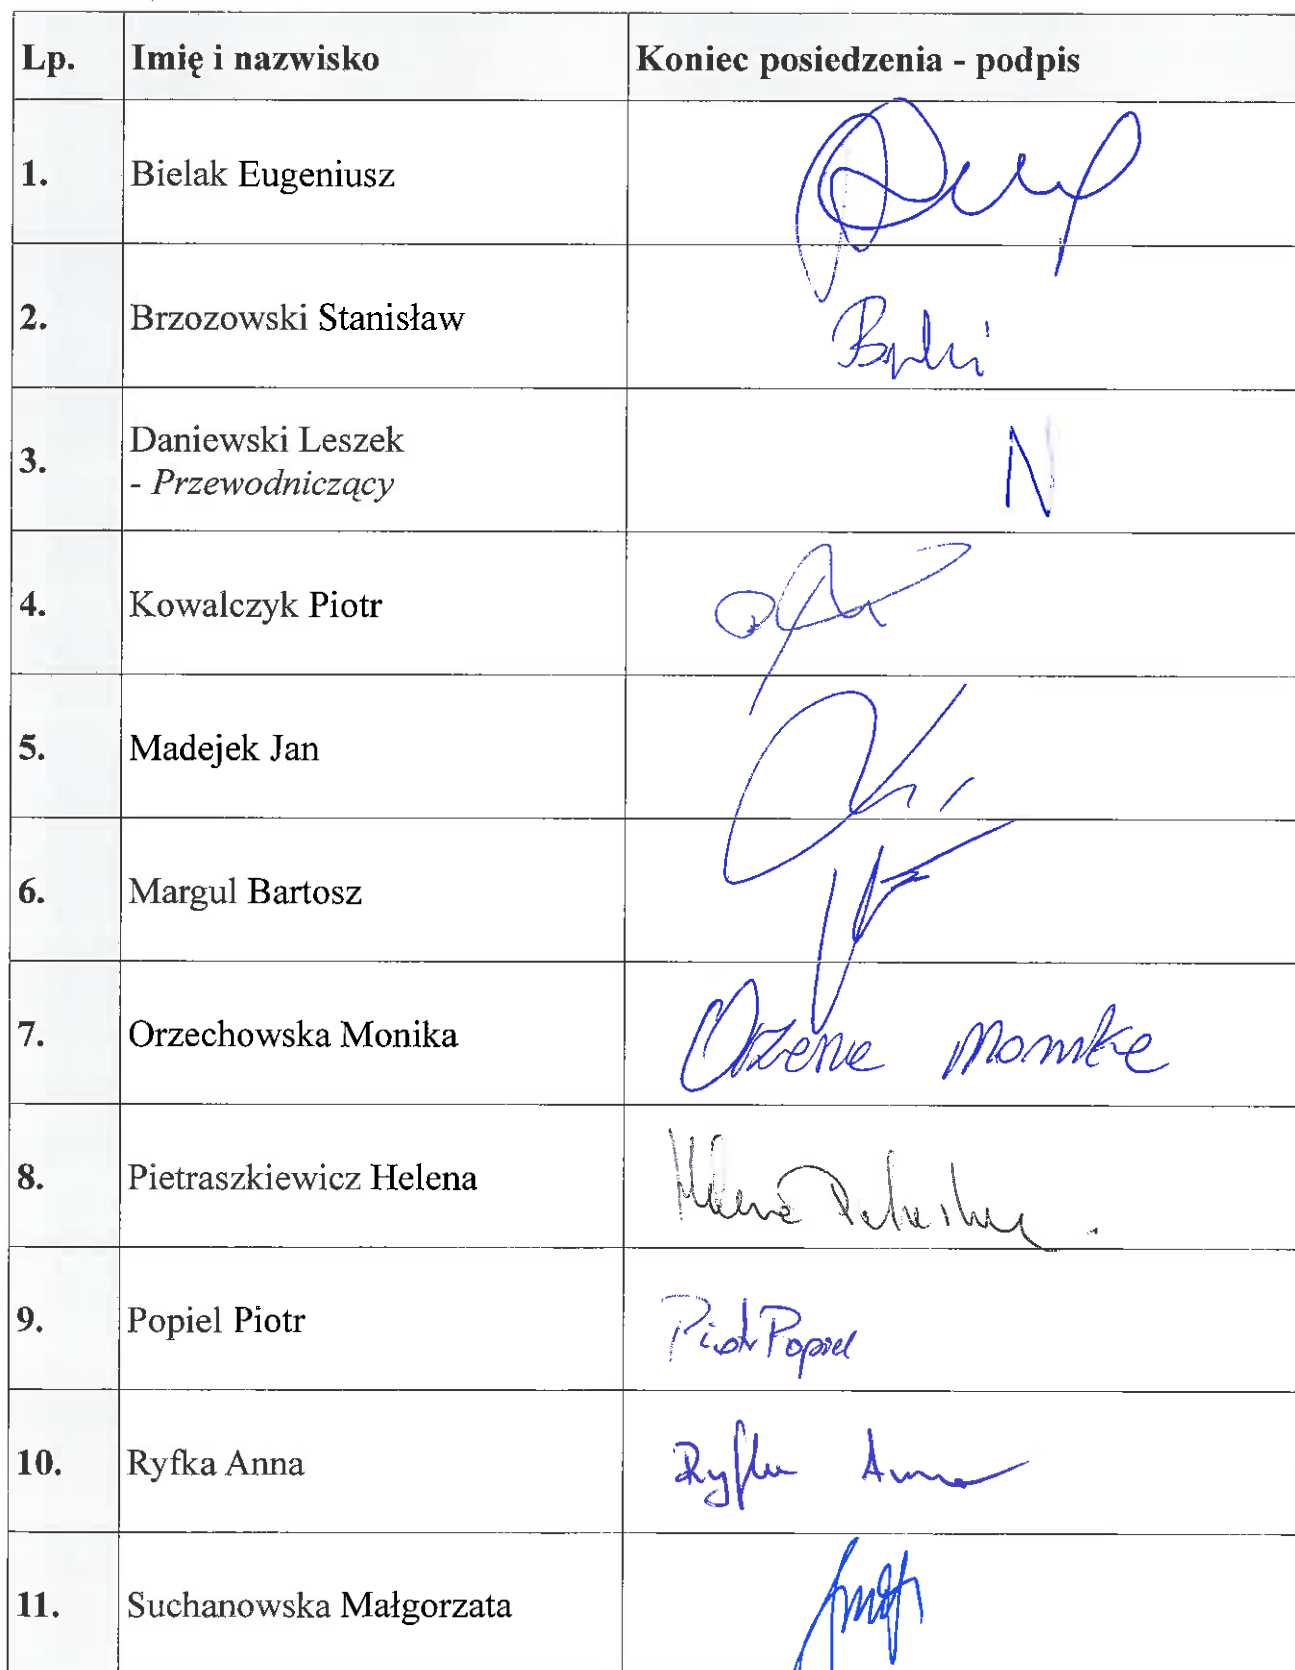 Lp. Imię i nazwisko Koniec posiedzenia - podpis
1. Bielak Eugeniusz
2. Brzozowski Stanisław
3. Daniewski Leszek N
- Przewodniczący
4. Kowalczyk Piotr
5. Madejek Jan
6. Margul Bartosz
7. Orzechowska Monika
8. Pietraszkiewicz Helena
9. Popiel Piotr Piotr Popiel
10. Ryfka Anna Ryfka Anna
11. Suchanowska Małgorzata